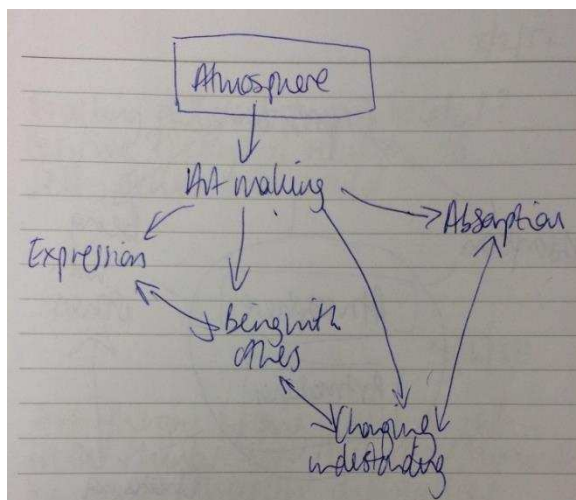 Atmosphere
Art making
Absorption
Expression
being with
others
Changing
understanding